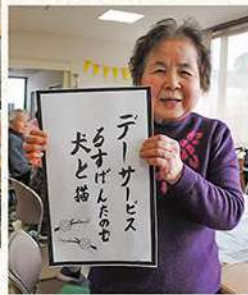 デーサービス
るすげんたのむ
犬と猫